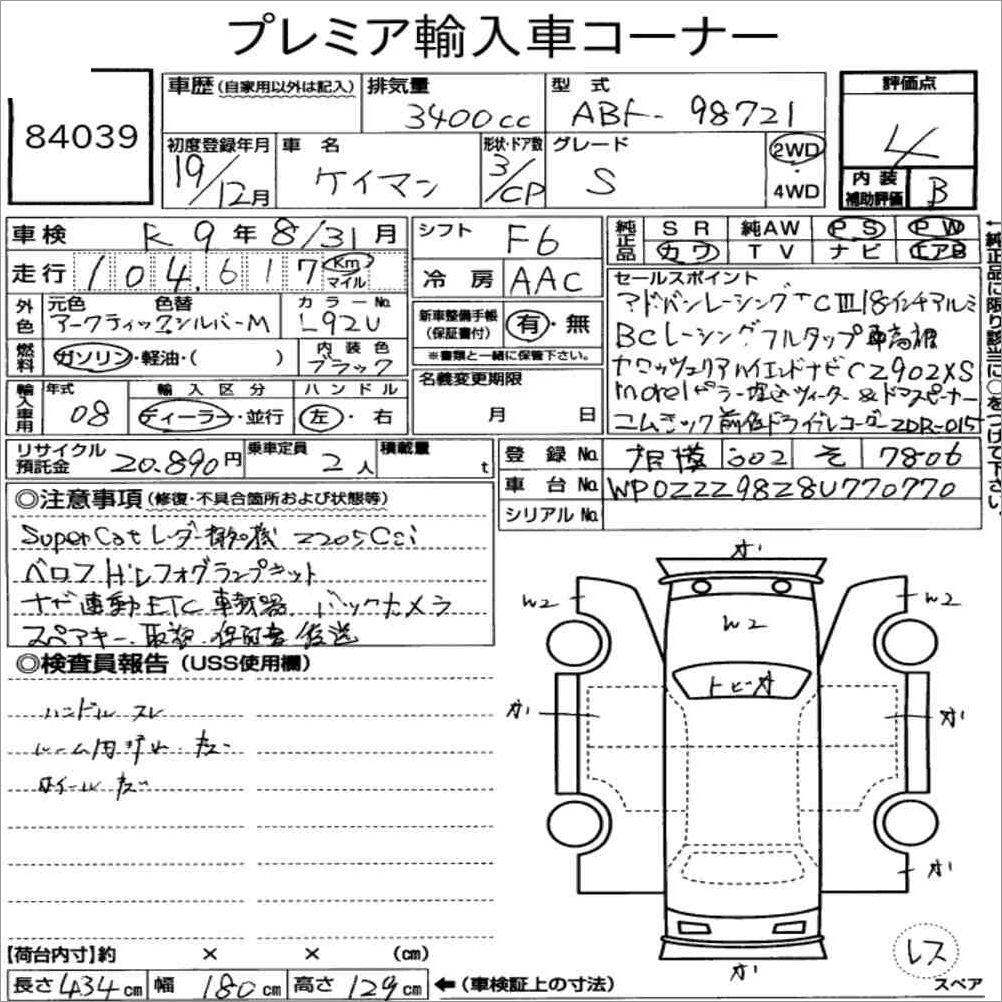 プレミア輸入車コーナー
84039
車歴(自家用以外は記入) 排気量 3400cc 型式 ABA- 98721 評価点 4
初度登録年月 19/12月 車名 ケイマン 形状・ドア数 3/CP グレード S 2WD 4WD 内装補助評価 B
車検 R9年8/31月 シフト F6 純正品 SR 純AW PS PW
走行 104,617 Km マイル 冷房 AAC カワ TV ナビ エアB
←純正品に限り該当に○をつけて下さい。
外色 元色 アークティックシルバーM 色替 カラーNo. L92U 新車整備手帳(保証書付) 有・無
※書類と一緒に保管下さい。
燃料 ガソリン・軽油・( ) 内装色 ブラック
輸入車用 年式 08 輸入区分 ディーラー・並行 ハンドル 左・右 名義変更期限 月 日
セールスポイント
アドバンレーシングTCⅢ18インチアルミ
BCレーシングフルタップ車高調
カロッツェリアハイエンドナビCZ902XS
morelピラー埋込ツィーター&ドアスピーカー
コムテック前後ドライブレコーダーZDR-015
リサイクル預託金 20.890円 乗車定員 2人 積載量 t
登録No. 相模 302 そ 7806
車台No. WP0ZZZ98Z8U770770
シリアルNo.
◎注意事項(修復・不具合箇所および状態等)
SuperCatレーダー探知機 Z205Csi
ベロフHiLフォグランプキット
ナビ連動ETC車載器 バックカメラ
スペアキー、取説、保証書 後送
◎検査員報告(USS使用欄)
ハンドル スレ
ルーム内 キズ
ホイール キズ
オ1
W2
W2
W2
トビオ
オ1
オ1
オ1
オ1
レス
スペア
【荷台内寸】約 × × (cm)
長さ434cm 幅180cm 高さ129cm ←(車検証上の寸法)